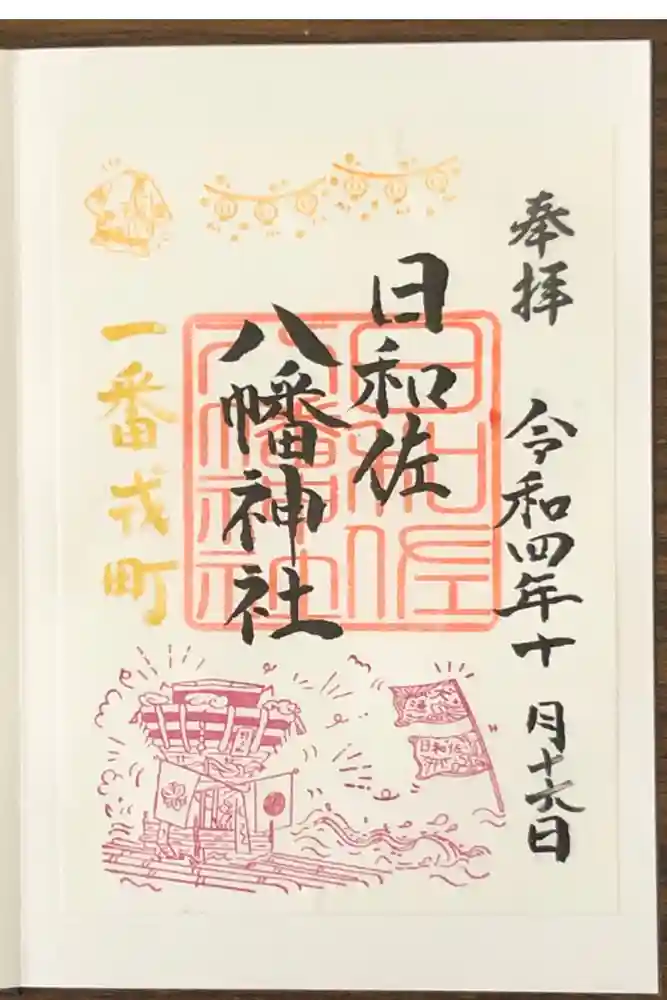 奉拝 令和四年十月十六日
日和佐
八幡神社
日和佐
八幡神社
一番戎町
日和佐